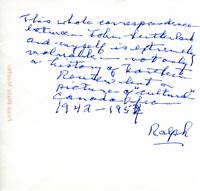 This whole correspondence
between John Sutherland
and myself is extremely
valuable – not only
a history of Northern
Review but a
picture of "culture"
Canada from
1942-195
Ralph